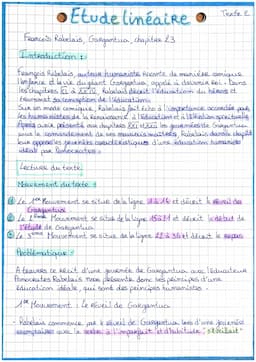 Etude linéaire
Texte 2
Francois Rabelais, Gargantua, chapitre 23
Introduction :
François Rabelais, auteur humaniste raconte de manière comique
l'enfance et la vie du géant Gargantua, appelé à devenir Roi. Dans
les chapitres XI à XXIV, Rabelais décrit l'éducation du héros et
transmet sa conception de l'éducation.
Sur un mode comique, Rabelais fait écho à l'importance accordée par
les humanistes de la Renaissance à l'éducation et à l'élévation spirituelle.
Après avoir présenté aux chapitres XXI et XXII les journées de Gargantua
sous le commandement de ses mauvais maîtres, Rabelais dans le chapitre
leur oppose les journées caractéristiques d'une éducation humaniste
idéale par Ponocrates.
Lecture du texte
Mouvement du texte :
Le 1er Mouvement se situe de la ligne et décrit le réveil de
Gargantua
Le Mouvement se situe de la ligne et décrit le début de
l'étude de Gargantua
Le Mouvement se situe de la ligne et décrit le repas
Problématique :
A travers ce récit d'une journée de Gargantua avec l'éducateur
Ponocrates Rabelais nous présente donc les principes d'une
éducation idéale, qui sont des principes humanistes.
1er Mouvement : Le réveil de Gargantua
- Rabelais commence par le réveil de Gargantua lors d'une journée
exemplaire avec le verbe à l'imparfait et d'habitude